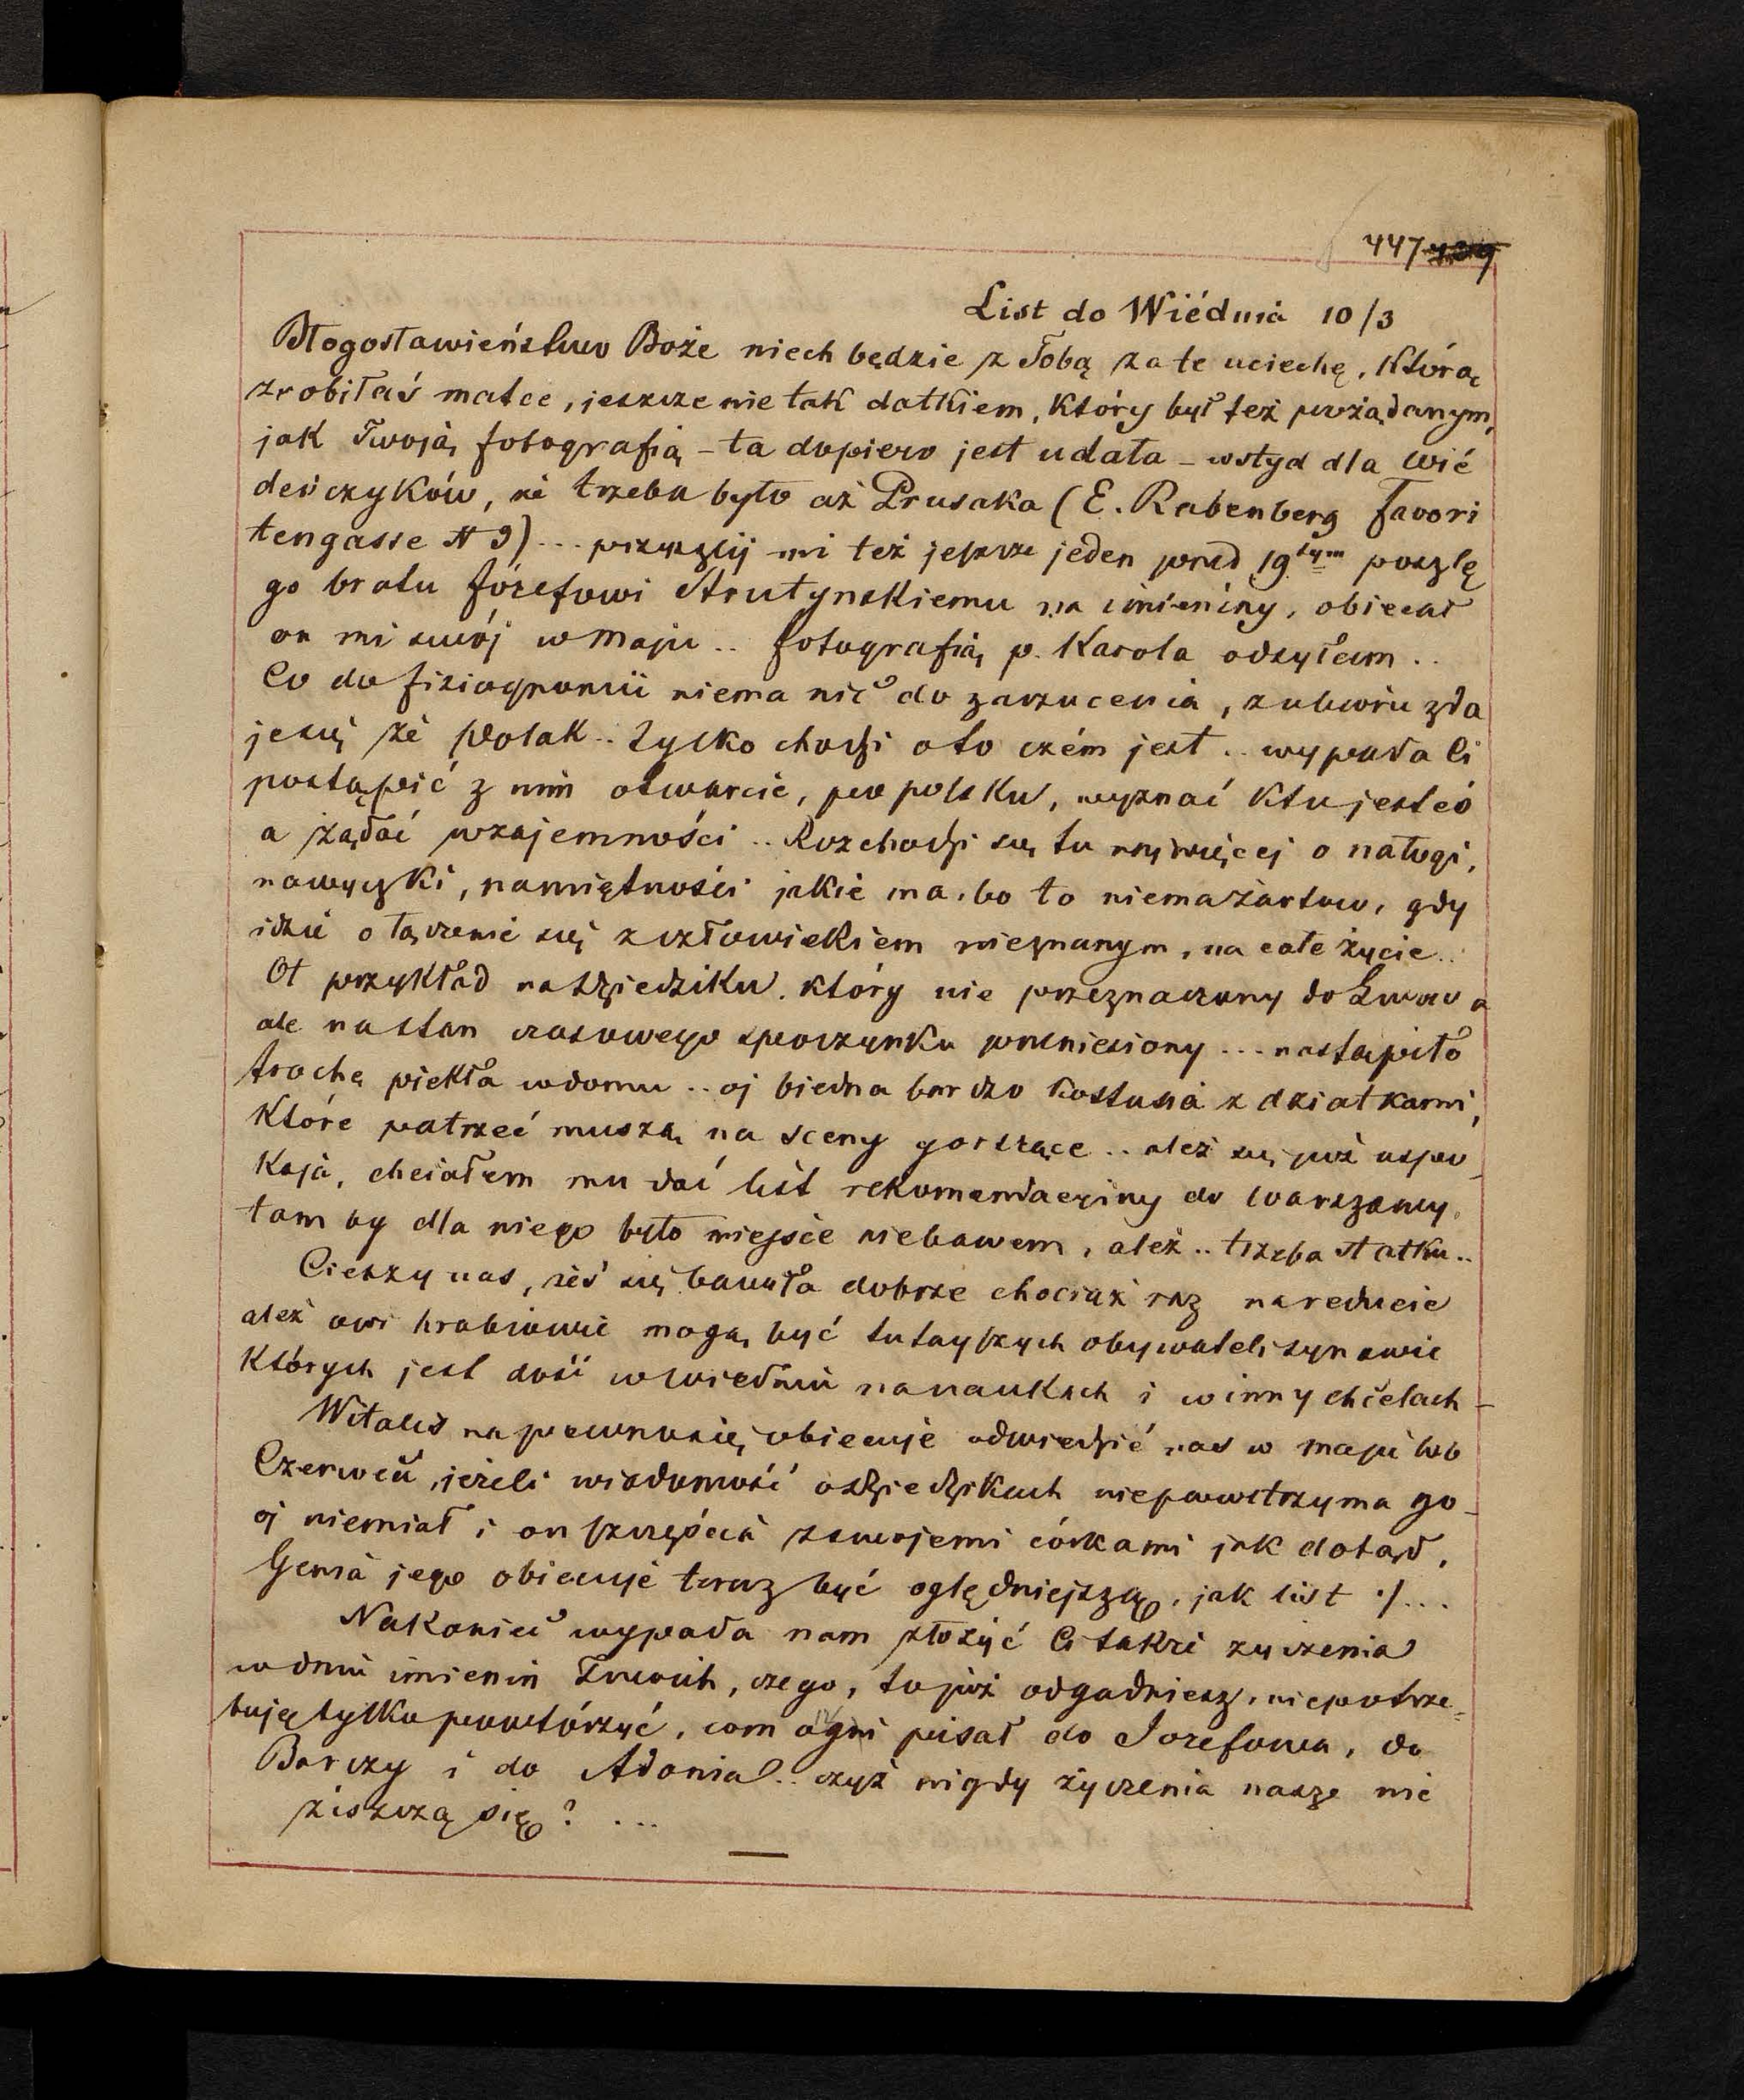 447
List do Wiédnia 10/3
Błogosławieństwo Boże niech będzie z Tobą za te uciechę, którą
zrobiłaś matce, jeszcze nie tak datkiem, który był też pożądanym,
jak Twoją fotografią – ta dopiero jest udała – wstyd dla Wié
deńczyków, że trzeba było aż Prusaka (E. Rabenberg Favori
tengasse N 9) ... przyszlij mi też jeszcze jeden pred 19tym poszlę
go bratu Józefowi Strutynskiemu na imieniny, obiecał
on mi swój w Maju .. fotografią p. Karola odsyłam ..
Co do fiziognomii niema nic do zarzucenia, z ubioru zda
je się że Polak .. tylko chodzi oto czém jest .. wypada Ci
postąpić z nim otwarcie, po polsku, wyznać kto jesteś
a żądać wzajemności .. Rozchodzi się tu najwięcej o nałogi,
nawyczki, namiętności jakie ma, bo to niema żartów, gdy
idzie o łączenie się z człowiekiem nieznanym, na całe życie ..
Ot przykład na Dziedziku, który nie przeznaczony do Lwowa
ale na stan czasowego spoczynku przeniesiony ... nastąpiło
trochę piekła w domu .. oj biedna bardzo Kostusia z dziatkami,
które patrzeć muszą na sceny gorszące .. ależ się już uspo
koją, chciałem mu dać list rekomendacyiny do Warszawy,
tam by dla niego było miejsce niebawem, ależ .. trzeba statku ..
Cieszy nas, żeś się bawiła dobrze chociaż raz na reducie
ależ owi hrabiowie mogą być tutayszych obywateli synowie
których jest dość w Wiedniu na naukach i w innych celach –
Witalis na pewno się obiecuje odwiedzić nas w maju lub
Czerwcu, jeżeli wiadomość o Dziedzikach niepowstrzyma go –
oj niemiał i on szczęścia z swojemi córkami jak dotąd,
Genia jego obiecuje teraz być oględniejszą, jak list ·/...
Nakoniec wypada nam złożyć Ci także życzenia
w dniu imienin Twoich, czego, to już odgadniesz, niepotrze=
buję tylko powtórzyć, com pisał do Jozefowa, do
Barczy i do Adonia .. czyż nigdy życzenia nasze nie
ziszczą się? ...